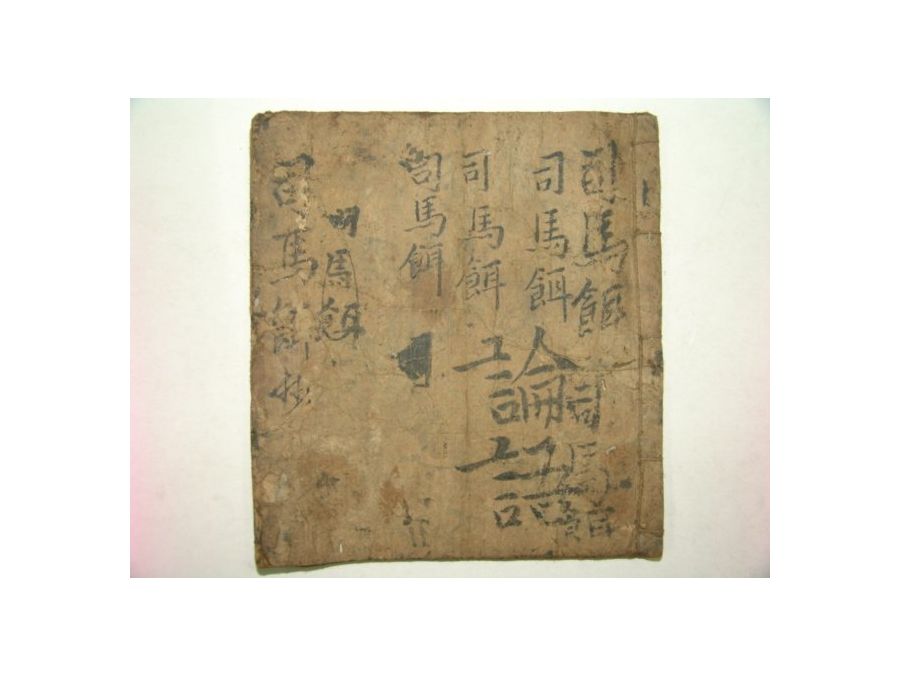 司馬餌
司馬
司馬餌
論語
司馬餌
司馬餌
司馬餌
司馬